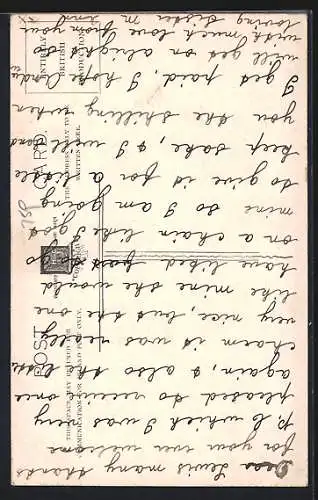 Dear Lewis many thanks
for your ever welcome
p.c which I was very
pleased to receive once
again, & also the little
charm it was really
very nice, but the one
like mine she would
have liked just to go
on a chain like I got
mine so I am going
to give it for a little
keep sake, & I will send
you the shilling when
I get paid, I hope
will get on alright so
with much love from your
loving sister M
POST CARD.
THIS SPACE MAY BE USED FOR
COMMUNICATION FOR INLAND POST ONLY.
THE ADDRESS ONLY TO BE
WRITTEN HERE.
ENTIRELY
BRITISH
PRODUCTION
750